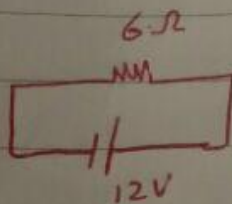 6.Ω
12V